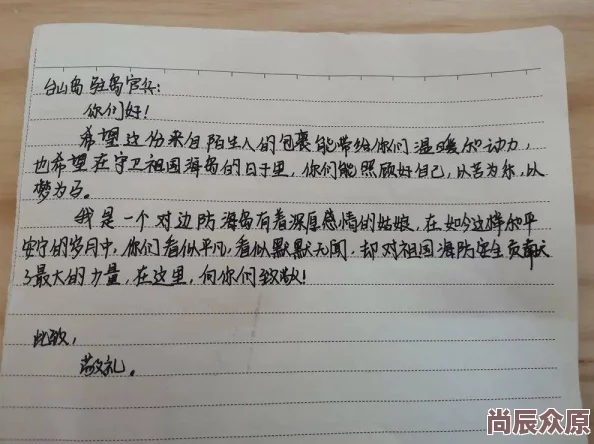 台山岛驻岛官兵：
你们好！
希望这份来自陌生人的包裹能带给你们温暖和动力，
也希望在守卫祖国海岛的日子里，你们能照顾好自己，以苦为乐，以
梦为马。
我是一个对边防海岛有着深厚感情的姑娘，在如今这样和平
安宁的岁月中，你们看似平凡，看似默默无闻，却对祖国海防安全贡献
了最大的力量，在这里，向你们致敬！
此致，
敬礼。
尚辰众原